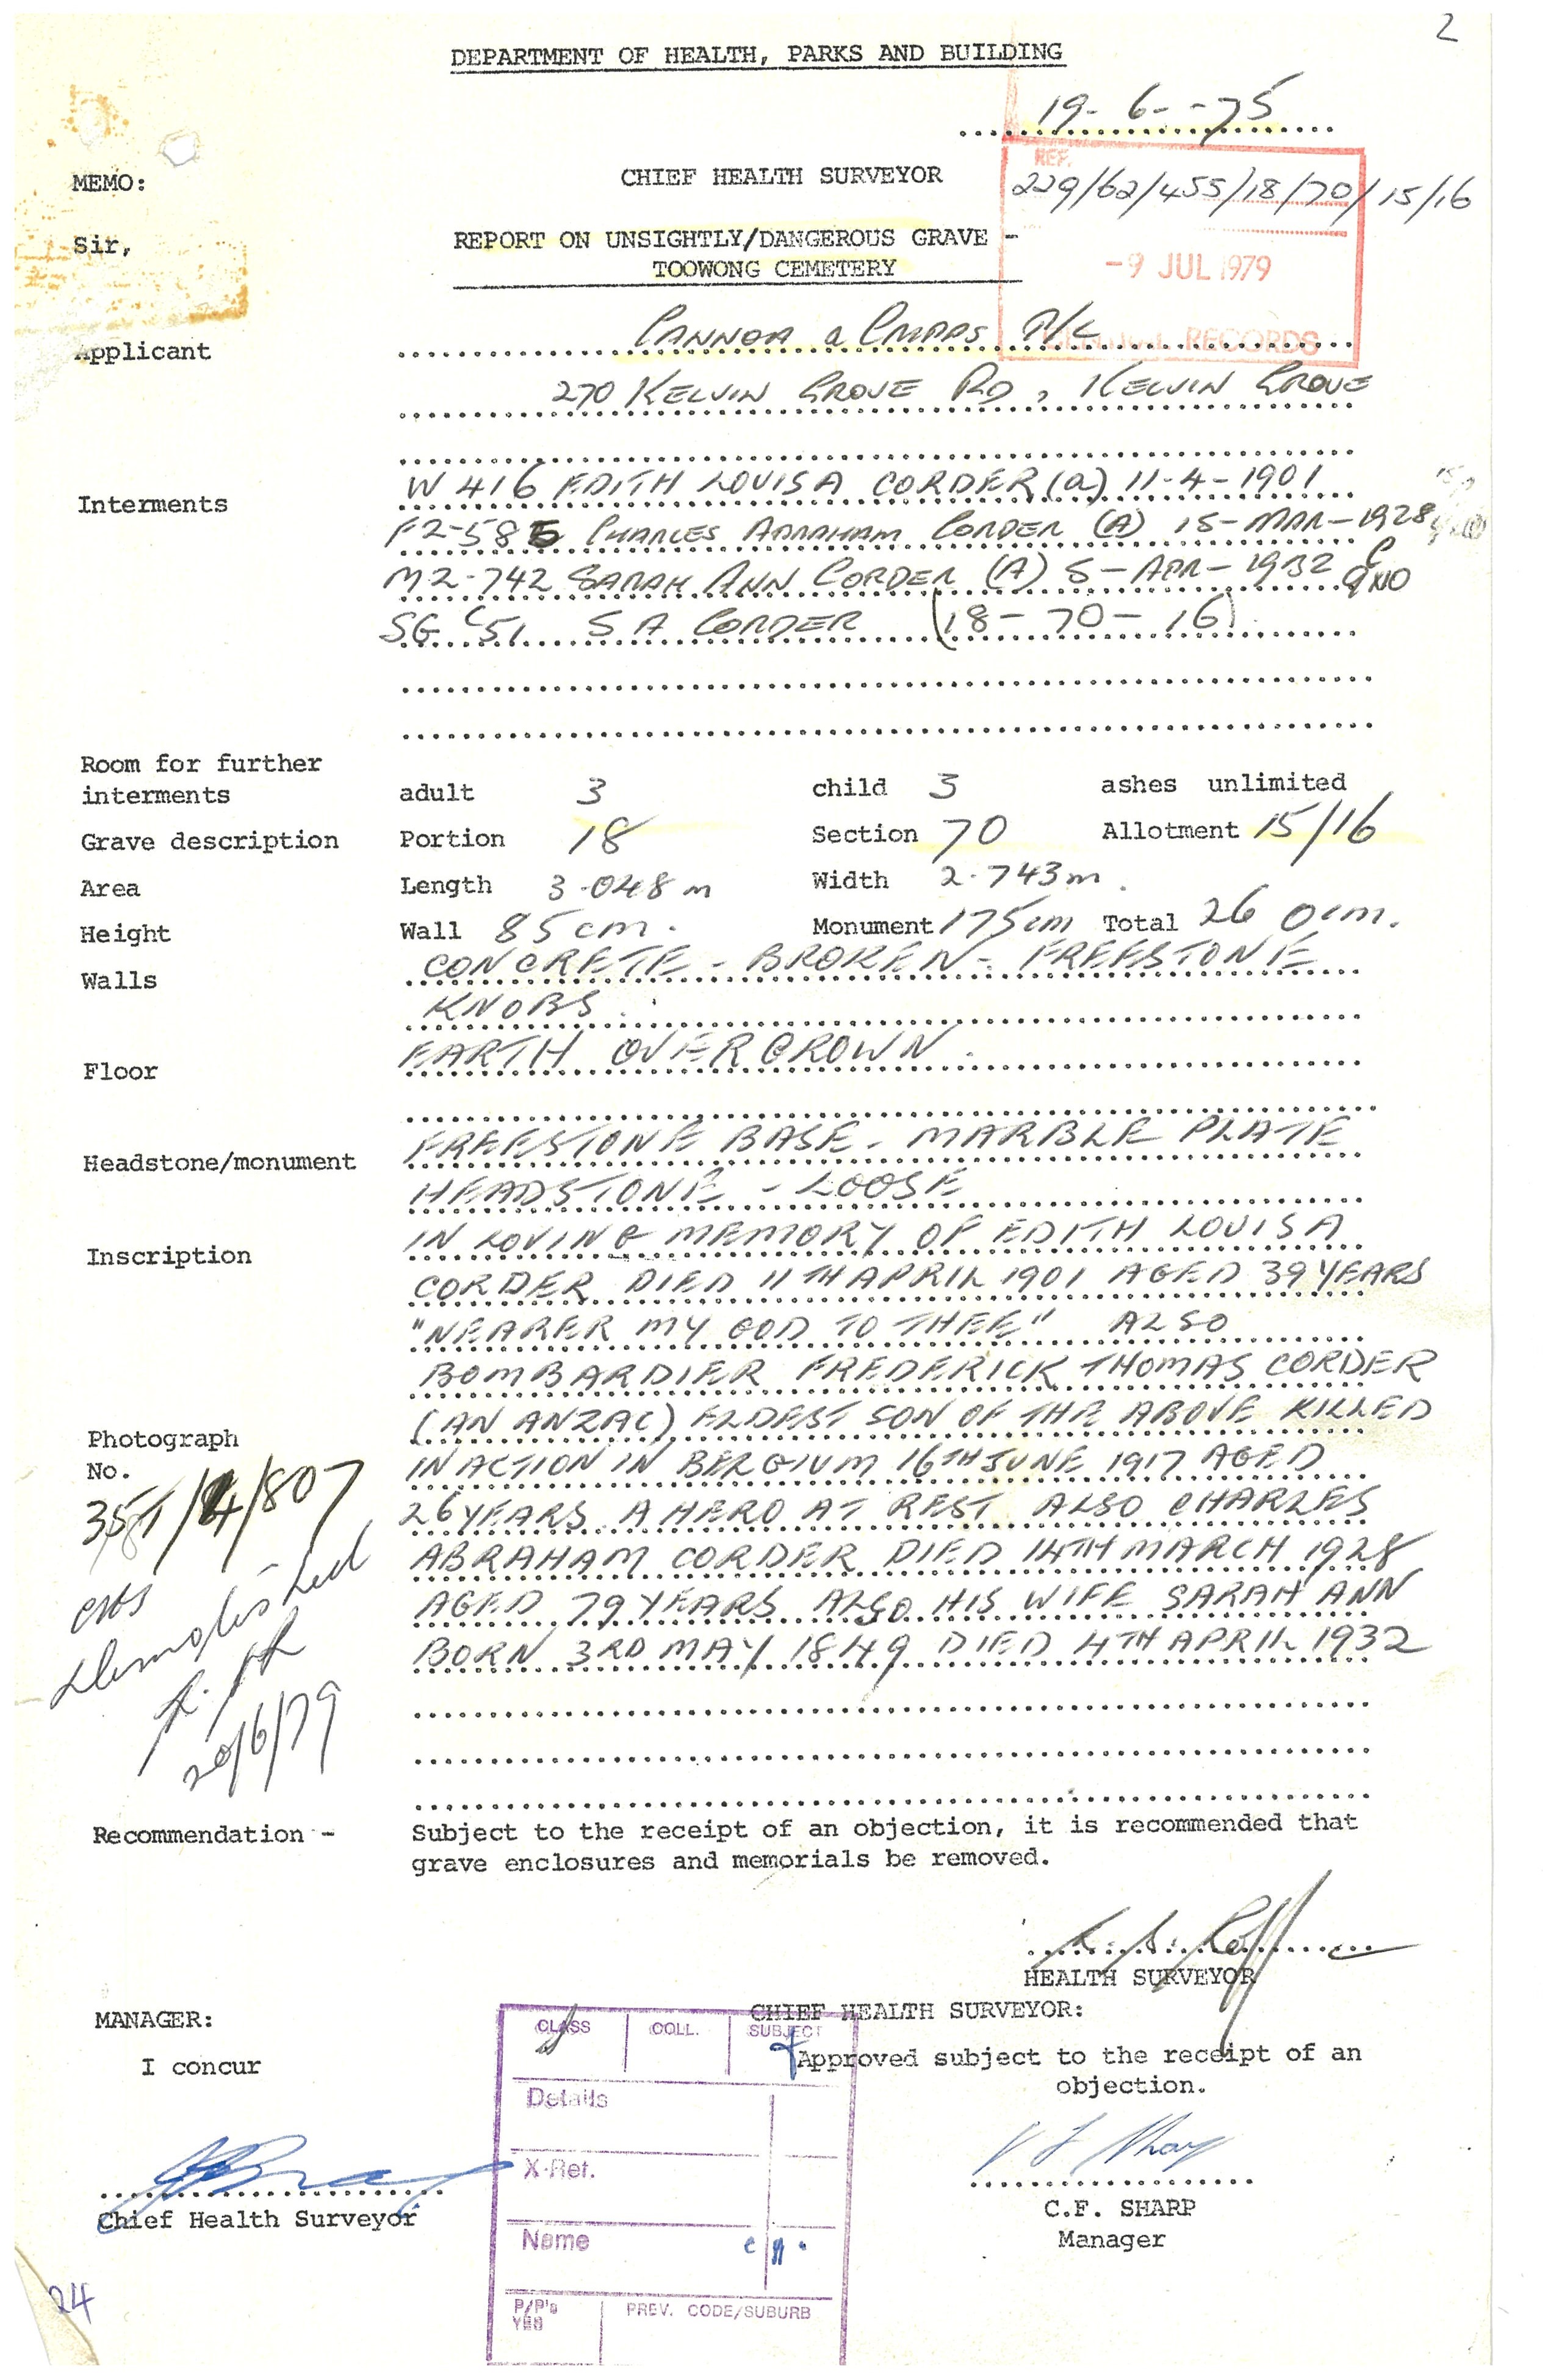 2
DEPARTMENT OF HEALTH, PARKS AND BUILDING
19-6--75
MEMO:
CHIEF HEALTH SURVEYOR
REF.
229/62/455/18/70/15/16
Sir,
REPORT ON UNSIGHTLY/DANGEROUS GRAVE -
TOOWONG CEMETERY
-9 JUL 1979
RECORDS
Applicant
CANNON & CRIPPS P/L
270 KELVIN GROVE RD, KELVIN GROVE
Interments
W 416 EDITH LOUISA CORDER (a) 11-4-1901
F2-585 CHARLES ABRAHAM CORDER (A) 15-MAR-1928
M2-742 SARAH ANN CORDER (A) 5-APR-1932
SG 51 S A CORDER (18-70-16)
Room for further
interments adult 3 child 3 ashes unlimited
Grave description Portion 18 Section 70 Allotment 15/16
Area Length 3.048 m Width 2.743m.
Height Wall 85 cm. Monument 175cm Total 260cm.
Walls CONCRETE - BROKEN - FREESTONE
KNOBS.
Floor EARTH OVERGROWN.
Headstone/monument FREESTONE BASE - MARBLE PLATE
HEADSTONE - LOOSE
Inscription IN LOVING MEMORY OF EDITH LOUISA
CORDER DIED 11TH APRIL 1901 AGED 39 YEARS
"NEARER MY GOD TO THEE" ALSO
BOMBARDIER FREDERICK THOMAS CORDER
(AN ANZAC) ELDEST SON OF THE ABOVE KILLED
IN ACTION IN BERGIUM 16TH JUNE 1917 AGED
26 YEARS A HERO AT REST ALSO CHARLES
ABRAHAM CORDER DIED 14TH MARCH 1928
AGED 79 YEARS ALSO HIS WIFE SARAH ANN
BORN 3RD MAY 1849 DIED 4TH APRIL 1932
Photograph
No.
/4/807
Demolished
20/6/79
Recommendation - Subject to the receipt of an objection, it is recommended that
grave enclosures and memorials be removed.
HEALTH SURVEYOR
MANAGER:
CHIEF HEALTH SURVEYOR:
I concur
Approved subject to the receipt of an
objection.
CLASS COLL. SUBJECT
Details
X-Ref.
Name
P/P's
YES
PREV. CODE/SUBURB
Chief Health Surveyor
C.F. SHARP
Manager
24